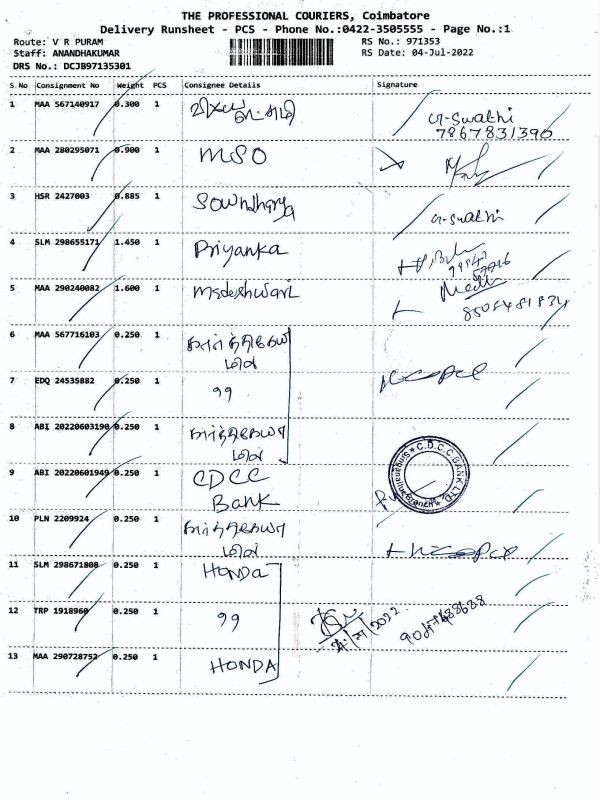 THE PROFESSIONAL COURIERS, Coimbatore
Delivery Runsheet - PCS - Phone No.:0422-3505555 - Page No.:1
Route: V R PURAM RS No.: 971353
Staff: ANANDHAKUMAR RS Date: 04-Jul-2022
DRS No.: DCJB97135301
S.No Consignment No Weight PCS Consignee Details Signature
1 MAA 567140917 0.300 1
G-Swathi
7867831390
2 MAA 280295071 0.900 1 MSO
3 HSR 2427003 0.885 1 Sowndharya G-Swathi
4 SLM 298655171 1.450 1 Priyanka
5 MAA 290240082 1.600 1 Msdeshwari
6 MAA 567716103 0.250 1
7 EDQ 24535882 0.250 1 99
8 ABI 20220603190 0.250 1
9 ABI 20220601949 0.250 1 CDCC
Bank
C.D.C.C BANK LTD.
10 PLN 2209924 0.250 1
11 SLM 298671808 0.250 1 HONDA
12 TRP 1918960 0.250 1 99
13 MAA 290728752 0.250 1 HONDA